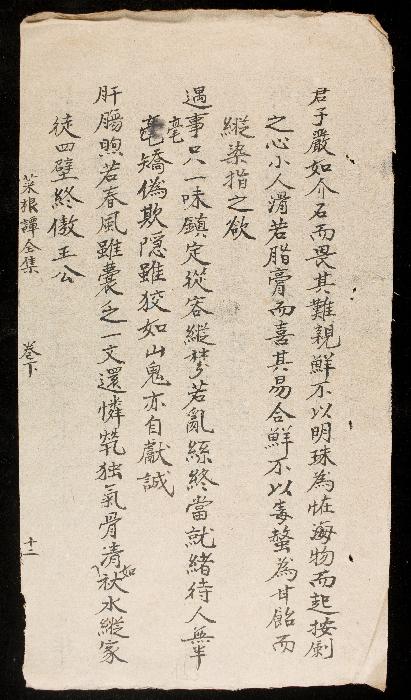 君子嚴如介石而畏其難親鮮不以明珠為怪海物而起按劍
之心小人滑若脂膏而喜其易合鮮不以毒螫為甘飴而
縱染指之欲
遇事只一味鎮定從容縱紛若亂絲終當就緒待人無半
毫矯偽欺隱雖狡如山鬼亦自獻誠
肝腸煦若春風雖囊乏一文還憐煢独氣骨清如秋水縱家
徒四壁終傲王公
菜根譚全集 卷下 十二